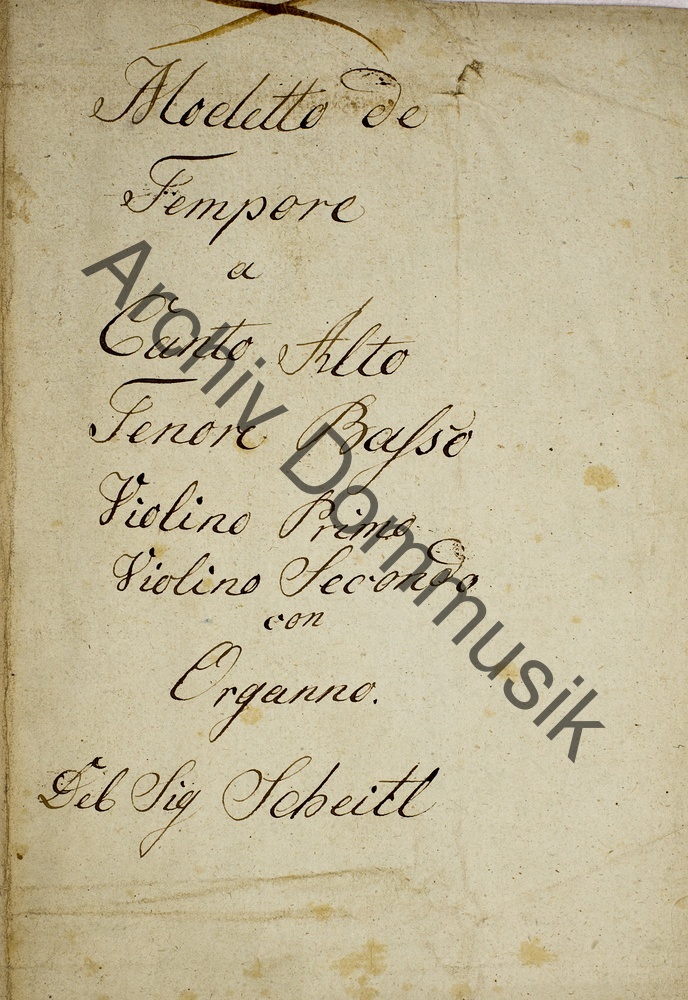 Modetto de
Tempore
a
Canto Alto
Tenore Baſso
Violino Primo
Violino Secondo
con
Organno.
Del Sig Scheitl
Archiv Dommusik